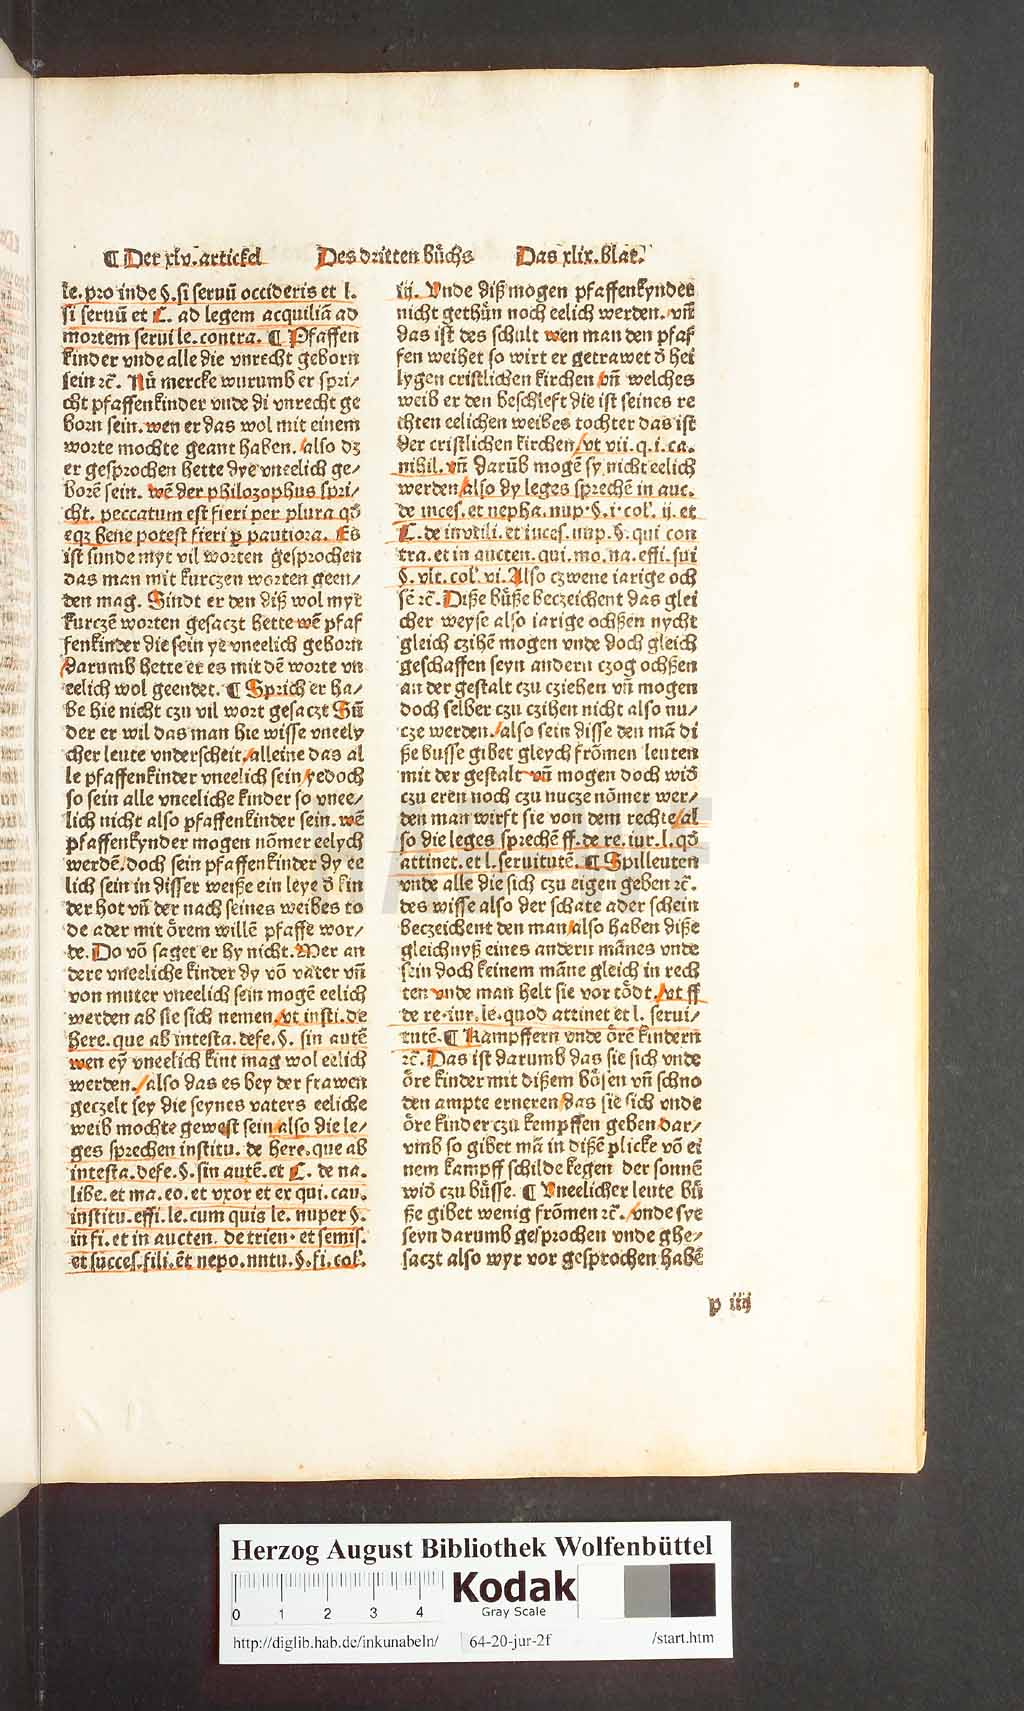 ¶ Der xlv. artickel Des dritten bůchs Das xlix. blat.
le. pro inde §. si seruū occideris et l.
si seruū et C. ad legem acquiliā ad
mortem serui le. contra. ¶ Pfaffen
kinder vnde alle die vnrecht geborn
sein ⁊c̄. Nů mercke wurumb er spri/
cht pfaffenkinder vnde di vnrecht ge
born sein. wen er das wol mit einem
worte mochte geant haben. /also dz
er gesprochen hette dye vneelich ge/
borē sein. wē der philozophus spri/
cht. peccatum est fieri per plura qđ
eqꝫ bene potest fieri ꝑ pautiora. Es
ist sunde myt vil worten gesprochen
das man mit kurczen worten geen/
den mag. Sindt er den diß wol myt
kurczē worten gesaczt hette wē pfaf
fenkinder die sein ye vneelich geborn
/darumb hette er es mit dē worte vn
eelich wol geendet. ¶ Sprich er ha/
be hie nicht czu vil wort gesaczt Sū
der er wil das man hie wisse vneely
cher leute vnderscheit /alleine das al
le pfaffenkinder vneelich sein /yedoch
so sein alle vneeliche kinder so vnee/
lich nicht also pfaffenkinder sein. wē
pfaffenkynder mogen nōmer eelych
werdē. /doch sein pfaffenkinder dy ee
lich sein in disser weiße ein leye đ kin
der hot vn̄ der nach seines weibes to
de ader mit ŏrem willē pfaffe wor/
de. Do vō saget er hy nicht. Mer an
dere vneeliche kinder dy vō vater vn̄
von muter vneelich sein mogē eelich
werden ab sie sich nemen /vt insti. de
here. que ab intesta. defe. §. sin autē
wen ey vneelich kint mag wol eelich
werden. /also das es bey der frawen
geczelt sey die seynes vaters eeliche
weib mochte gewest sein /also die le/
ges sprechen institu. de here. que ab
intesta. defe. §. sin autē. et C. de na.
libe. et ma. eo. et vxor et ex qui. cau.
institu. effi. le. cum quis le. nuper §.
in fi. et in aucten. de trien. et semis.
et succes. fili. et nepo. nntu. §. fi. col'.
iij. Vnde diß mogen pfaffenkyndes
nicht gethůn noch eelich werden. /vn̄
das ist des schult wen man den pfaf
fen weihet so wirt er getrawet đ hei
lygen cristlichen kirchen /vn̄ welches
weib er den beschleft die ist seines re
chten eelichen weibes tochter das ist
der cristlichen kirchen /vt vii. q. i. ca.
nihil. vn̄ darūb mogē sy nicht eelich
werden /also dy leges sprechē in auc.
de inces. et nepha. nup. §. i. col'. ij. et
C. de invtili. et inces. nup. §. qui con
tra. et in aucten. qui. mo. na. effi. sui
§. vlt. col'. vi. Also czwene iarige och
sē ⁊c̄. Diße bůße beczeichent das glei
cher weyse also iarige ochßen nycht
gleich czihē mogen vnde doch gleich
geschaffen seyn andern czog ochßen
an der gestalt czu cziehen vn̄ mogen
doch selber czu czihen nicht also nu/
cze werden. /also sein disse den mā di
ße busse gibet gleych frōmen leuten
mit der gestalt /vn̄ mogen doch wiđ
czu eren noch czu nucze nōmer wer/
den man wirft sie von dem rechte /al
so die leges sprechē ff. de re. iur. l. qđ
attinet. et l. seruitutē. ¶ Spilleuten
vnde alle die sich czu eigen geben ⁊c̄.
des wisse also der schate ader schein
beczeichent den man /also haben diße
gleichnyß eines andern mānes vnde
sein doch keinem māne gleich in rech
ten vnde man helt sie vor tŏdt. /vt ff
de re. iur. le. quod attinet et l. serui/
tutē. ¶ Kampffern vnde ŏrē kindern
⁊c̄. Das ist darumb das sie sich vnde
ŏre kinder mit dißem bŏsen vn̄ schno
den ampte erneren /das sie sich vnde
ŏre kinder czu kempffen geben /dar/
vmb so gibet mā in dißē plicke vō ei
nem kampff schilde kegen der sonnē
wiđ czu bůsse. ¶ Vneelicher leute bů
ße gibet wenig frōmen ⁊c̄. /vnde sye
seyn darumb gesprochen vnde ghe/
saczt also wyr vor gesprochen habē
p iij
HAB WF
Herzog August Bibliothek Wolfenbüttel
0 1 2 3 4
Kodak
Gray Scale
http://diglib.hab.de/inkunabeln/ 64-20-jur-2f /start.htm